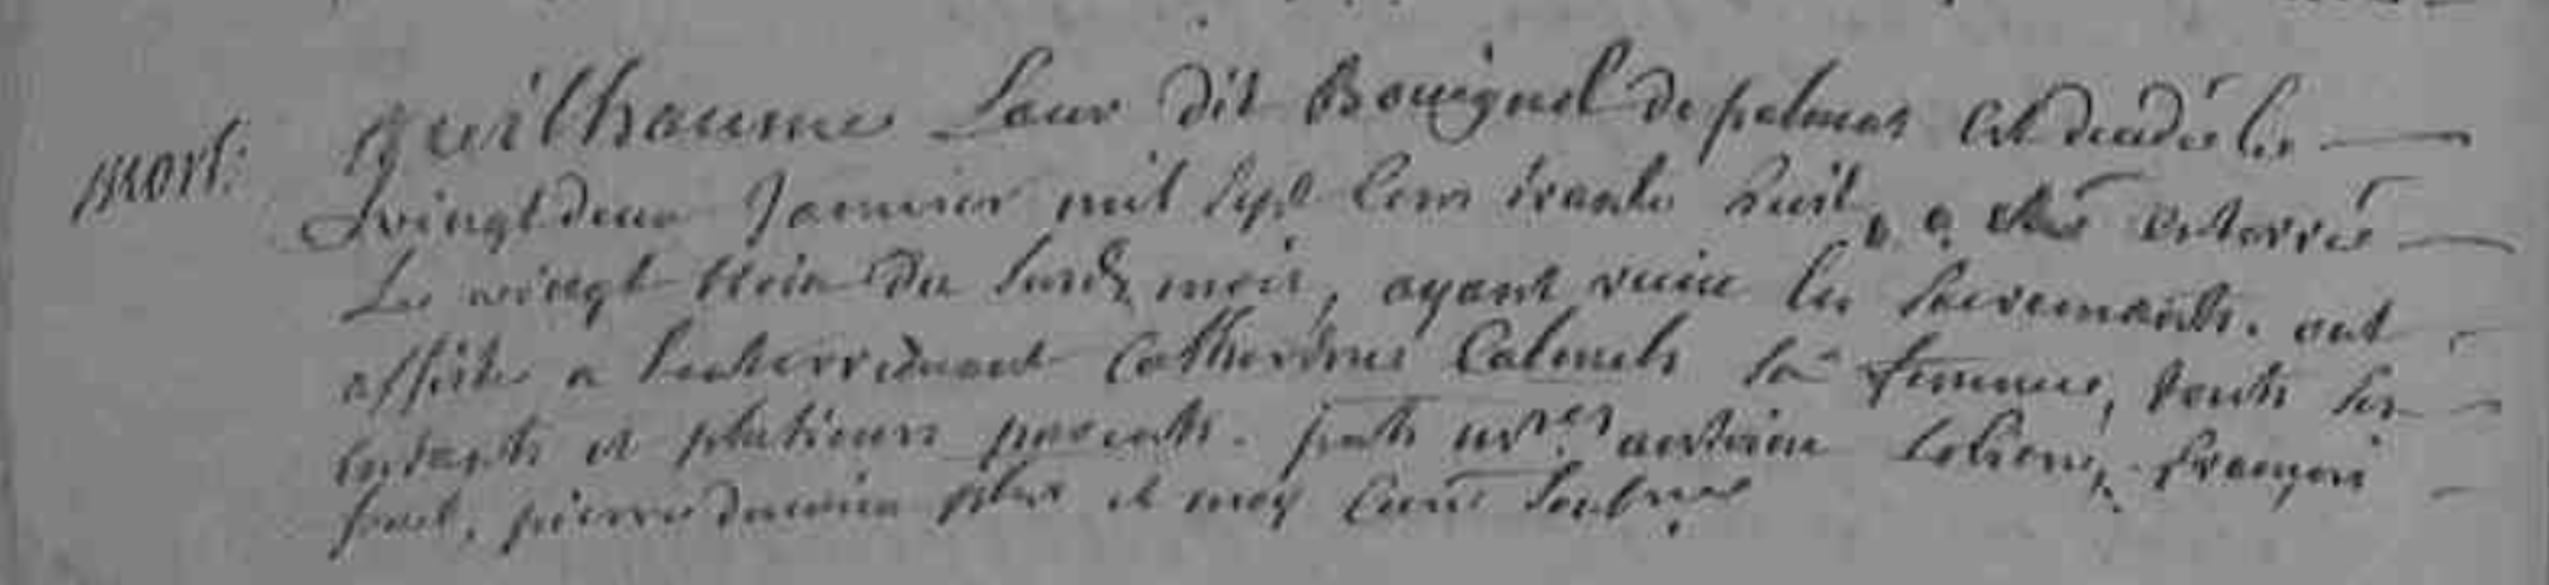 mort:
Guilhaume Laur dit Bouignol de palmas est decedé le
vingt deux Janvier mil sept cens trante huit, e a esté enterré
Le vingt trois du susd. mois, ayant receu les sacremants. ont
assisté a l'enterrement Catherine Calmels sa femme, touts ses
enfants et plusieurs parents. pnts mres antoine françois
pierre plus et moy curé soubne